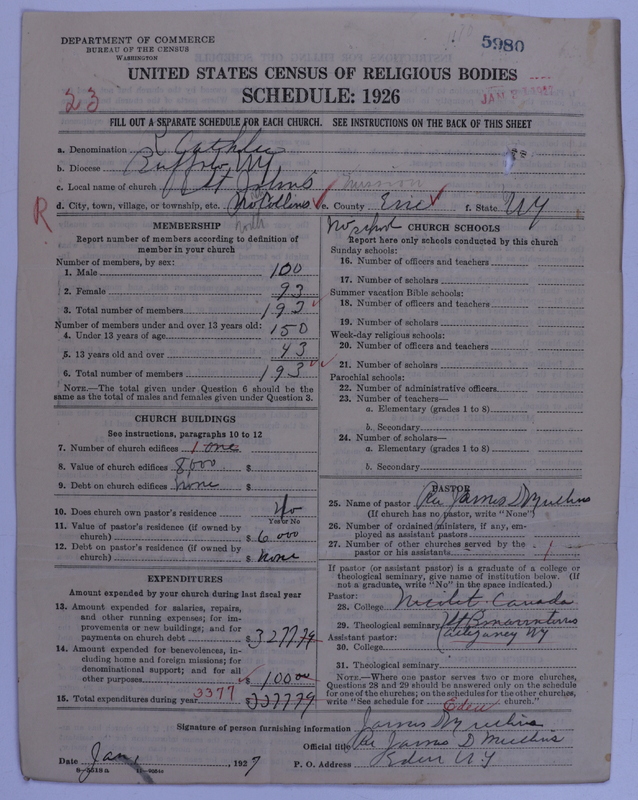 DEPARTMENT OF COMMERCE
BUREAU OF THE CENSUS
WASHINGTON
5980
UNITED STATES CENSUS OF RELIGIOUS BODIES
SCHEDULE: 1926
23
FILL OUT A SEPARATE SCHEDULE FOR EACH CHURCH. SEE INSTRUCTIONS ON THE BACK OF THIS SHEET
a. Denomination
b. Diocese Buffalo, NY
c. Local name of church St Johns Mission
d. City, town, village, or township, etc. No Collins e. County Erie f. State NY
R
North
MEMBERSHIP
Report number of members according to definition of
member in your church
Number of members, by sex:
1. Male 100
2. Female 93
3. Total number of members 193
Number of members under and over 13 years old:
4. Under 13 years of age 150
5. 13 years old and over 43
6. Total number of members 193
NOTE.—The total given under Question 6 should be
same as the total of males and females given under Question 3.
CHURCH BUILDINGS
See instructions, paragraphs 10 to 12
7. Number of church edifices 1 one
8. Value of church edifices 8000 $
9. Debt on church edifices None $
10. Does church own pastor's residence No
Yes or No
11. Value of pastor's residence (if owned by
church) $ 6000
12. Debt on pastor's residence (if owned by
church) $ None
EXPENDITURES
Amount expended by your church during last fiscal year
13. Amount expended for salaries, repairs,
and other running expenses; for im-
provements or new buildings; and for
payments on church debt $ 3277 79
14. Amount expended for benevolences, in-
cluding home and foreign missions; for
denominational support; and for all
other purposes $ 100 00
3377
15. Total expenditures during year $ 3377 79
No school
CHURCH SCHOOLS
Report here only schools conducted by this church
Sunday schools:
16. Number of officers and teachers
17. Number of scholars
Summer vacation Bible schools:
18. Number of officers and teachers
19. Number of scholars
Week-day religious schools:
20. Number of officers and teachers
21. Number of scholars
Parochial schools:
22. Number of administrative officers
23. Number of teachers—
a. Elementary (grades 1 to 8)
b. Secondary
24. Number of scholars—
a. Elementary (grades 1 to 8)
b. Secondary
PASTOR
25. Name of pastor Rev James D Mullins
(If church has no pastor, write "None")
26. Number of ordained ministers, if any, em-
ployed as assistant pastors
27. Number of other churches served by the
pastor or his assistants 1
If pastor (or assistant pastor) is a graduate of a college or
theological seminary, give name of institution below. (If
not a graduate, write "No" in the space indicated.)
Pastor:
28. College Nicolet Canada
29. Theological seminary St Bonaventures
Allegany NY
Assistant pastor:
30. College
31. Theological seminary
NOTE.—Where one pastor serves two or more churches,
Questions 28 and 29 should be answered only on the schedule
for one of the churches; on the schedules for the other churches,
write "See schedule for Eden church."
Signature of person furnishing information James D Mullins
Official title Rev James D Mullins
Date Jan, 1927 P. O. Address Eden NY
8—5518a